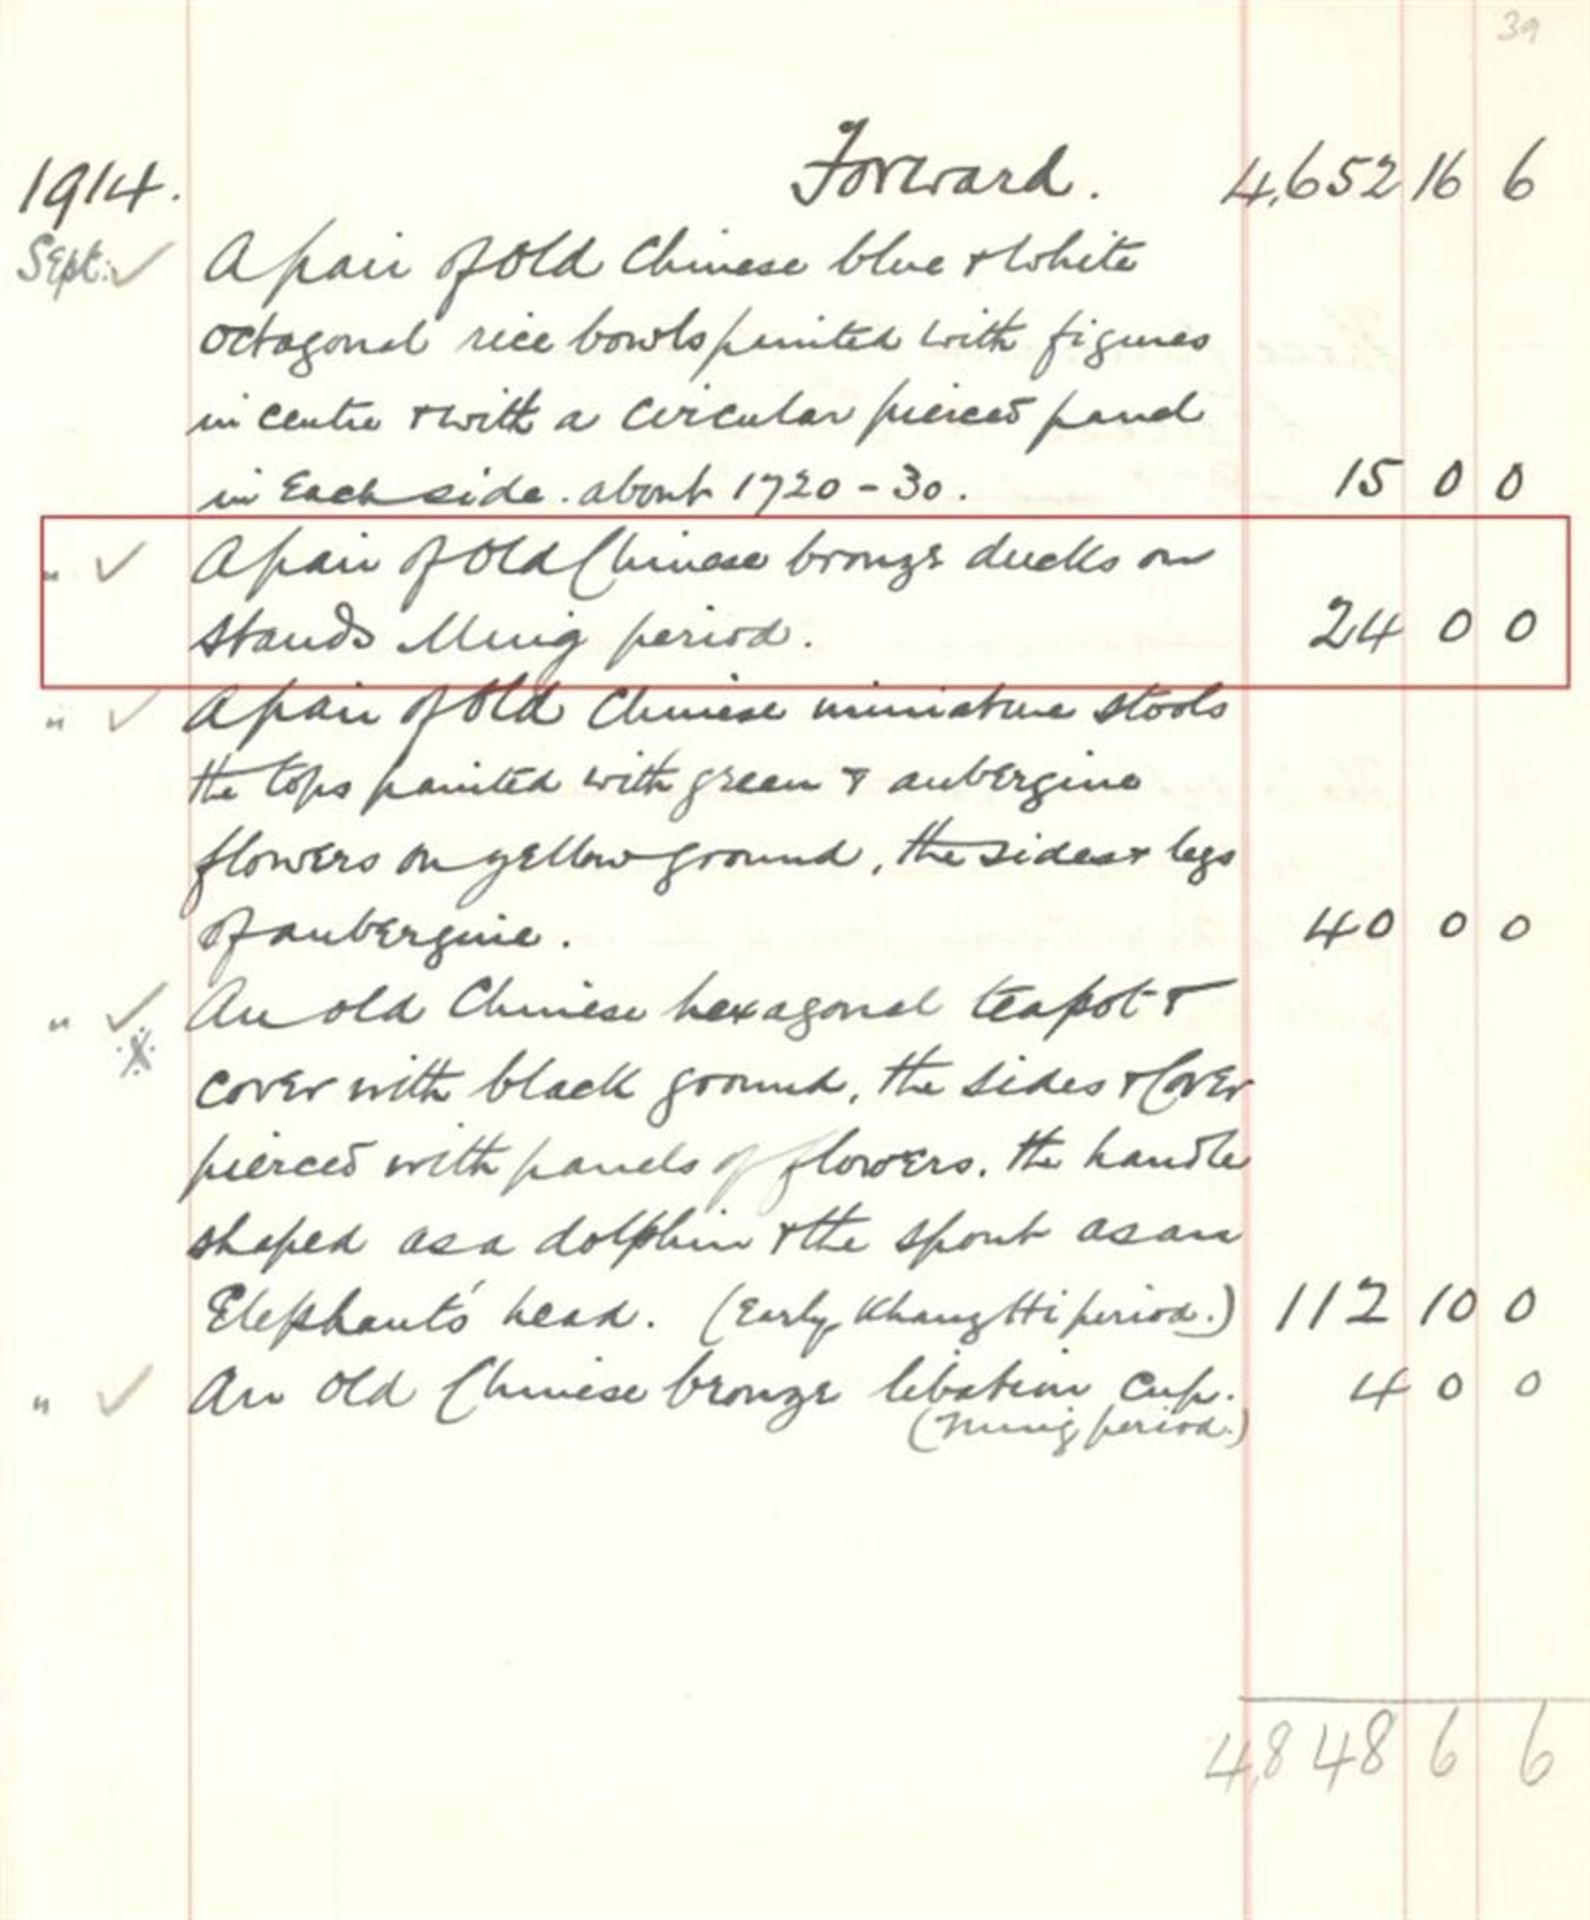 39
1914. Forward. 4,652 16 6
Sept. ✓ A pair of Old Chinese blue & white
octagonal rice bowls painted with figures
in centre & with a circular pierced panel
in Each side. about 1720-30. 15 0 0
" ✓ A pair of Old Chinese bronze ducks on
stands Ming period. 24 0 0
" ✓ A pair of Old Chinese miniature stools
the tops painted with green & aubergine
flowers on yellow ground, the sides & legs
of aubergine. 40 0 0
" ✓ An old Chinese hexagonal teapot &
cover with black ground, the sides & Cover
pierced with panels of flowers. the handle
shaped as a dolphin & the spout as an
Elephant's head. (Early Khang Hi period.) 112 10 0
" ✓ An Old Chinese bronze libation Cup. 4 0 0
(Ming period.)
4,848 6 6